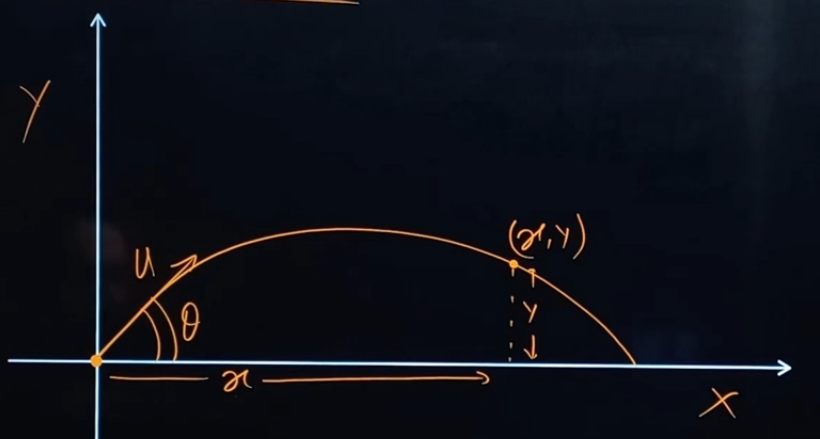 Y
u
θ
(x, y)
y
x
X